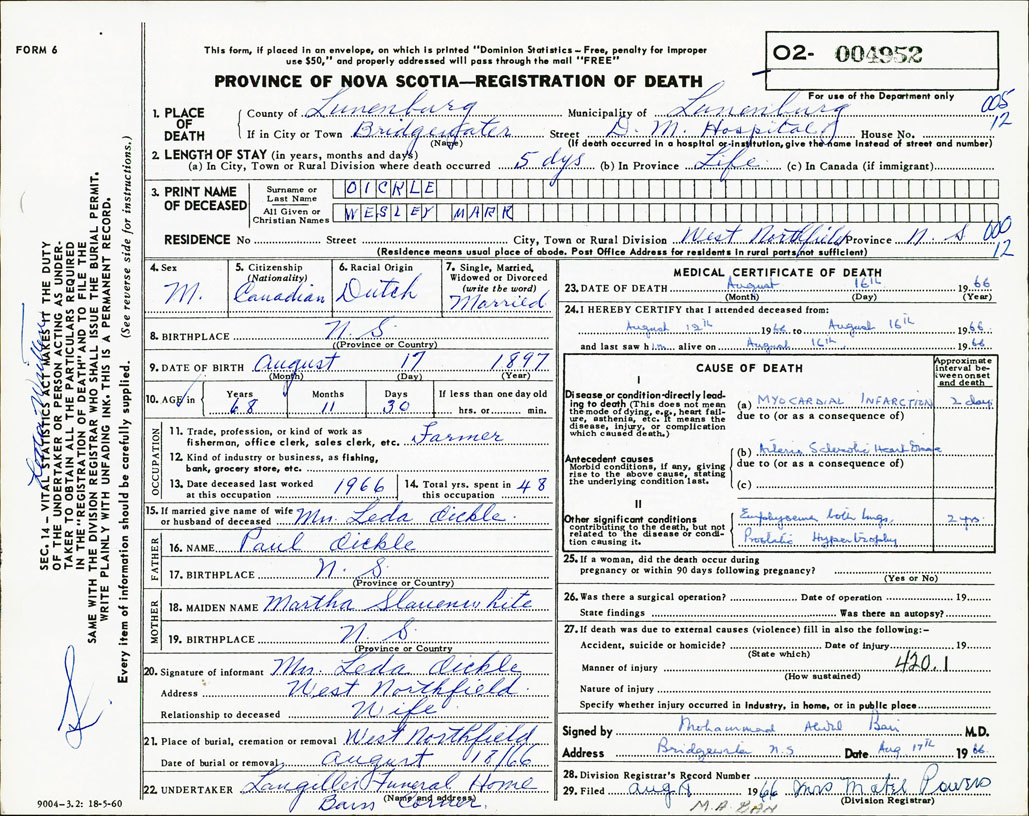 FORM 6
This form, if placed in an envelope, on which is printed "Dominion Statistics – Free, penalty for improper
use $50," and properly addressed will pass through the mail "FREE"
O2- 004952
PROVINCE OF NOVA SCOTIA—REGISTRATION OF DEATH
For use of the Department only
005
12
1. PLACE OF DEATH
County of Lunenburg Municipality of Lunenburg
If in City or Town Bridgewater Street D. M. Hospital House No.
(Name) (If death occurred in a hospital or institution, give the name instead of street and number)
2. LENGTH OF STAY (in years, months and days)
(a) In City, Town or Rural Division where death occurred 5 dys (b) In Province Life (c) In Canada (if immigrant)
3. PRINT NAME OF DECEASED
Surname or Last Name OICKLE
All Given or Christian Names WESLEY MARK
000
12
RESIDENCE No Street City, Town or Rural Division West Northfield Province N. S
(Residence means usual place of abode. Post Office Address for residents in rural parts not sufficient)
4. Sex
M.
5. Citizenship
(Nationality)
Canadian
6. Racial Origin
Dutch
7. Single, Married, Widowed or Divorced
(write the word)
Married
8. BIRTHPLACE N. S.
(Province or Country)
9. DATE OF BIRTH August 17 1897
(Month) (Day) (Year)
10. AGE in Years Months Days If less than one day old
68 11 30 hrs. or min.
OCCUPATION
11. Trade, profession, or kind of work as
fisherman, office clerk, sales clerk, etc. Farmer
12. Kind of industry or business, as fishing,
bank, grocery store, etc.
13. Date deceased last worked
at this occupation 1966
14. Total yrs. spent in
this occupation 48
15. If married give name of wife
or husband of deceased Mrs. Leda Oickle
FATHER
16. NAME Paul Oickle
17. BIRTHPLACE N. S.
(Province or Country)
MOTHER
18. MAIDEN NAME Martha Slauenwhite
19. BIRTHPLACE N. S.
(Province or Country)
20. Signature of informant Mrs. Leda Oickle
Address West Northfield.
Relationship to deceased Wife
21. Place of burial, cremation or removal West Northfield
Date of burial or removal August 18/66
22. UNDERTAKER Langilles Funeral Home
(Name and address)
Corner.
MEDICAL CERTIFICATE OF DEATH
23. DATE OF DEATH August 16th 1966
(Month) (Day) (Year)
24. I HEREBY CERTIFY that I attended deceased from:
August 12th 1966 to August 16th 1966
and last saw him alive on August 16th 1966
CAUSE OF DEATH
Approximate interval between onset and death
I
Disease or condition directly leading to death (This does not mean
the mode of dying, e.g., heart failure, asthenia, etc. It means the
disease, injury, or complication
which caused death.)
(a) MYOCARDIAL INFARCTION 2 days
due to (or as a consequence of)
Antecedent causes
Morbid conditions, if any, giving
rise to the above cause, stating
the underlying condition last.
(b) Arterio Sclerotic Heart Disease
due to (or as a consequence of)
(c)
II
Other significant conditions
contributing to the death, but not
related to the disease or condition causing it.
Emphysema both lungs. 2 yrs.
Prostatic Hypertrophy
25. If a woman, did the death occur during
pregnancy or within 90 days following pregnancy?
(Yes or No)
26. Was there a surgical operation? Date of operation 19
State findings Was there an autopsy?
27. If death was due to external causes (violence) fill in also the following:–
Accident, suicide or homicide? Date of injury 19
(State which)
420.1
Manner of injury
(How sustained)
Nature of injury
Specify whether injury occurred in industry, in home, or in public place
Signed by Mohammad Abdul Bari M.D.
Address Bridgewater N.S Date Aug 17th 1966
28. Division Registrar's Record Number
29. Filed 1966 Mrs Powers
(Division Registrar)
M.A. BARI
SEC. 114 – VITAL STATISTICS ACT MAKES IT THE DUTY
OF THE UNDERTAKER OR PERSON ACTING AS UNDER-
TAKER TO OBTAIN ALL THE PARTICULARS REQUIRED
IN THE "REGISTRATION OF DEATH" AND TO FILE THE
SAME WITH THE DIVISION REGISTRAR WHO SHALL ISSUE THE BURIAL PERMIT.
WRITE PLAINLY WITH UNFADING INK. THIS IS A PERMANENT RECORD.
Every item of information should be carefully supplied. (See reverse side for instructions.)
9004–3.2: 18-5-60